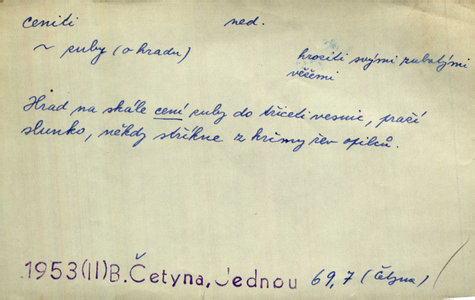 ceniti ned.
~ zuby (o hradu) hroziti svými zubatými
věžemi
Hrad na skále cení zuby do třiceti vesnic, praží
slunko, někdy stříkne z krčmy řev opilců.
1953(II)B.Četyna, Jednou 69,7 (Četyna)